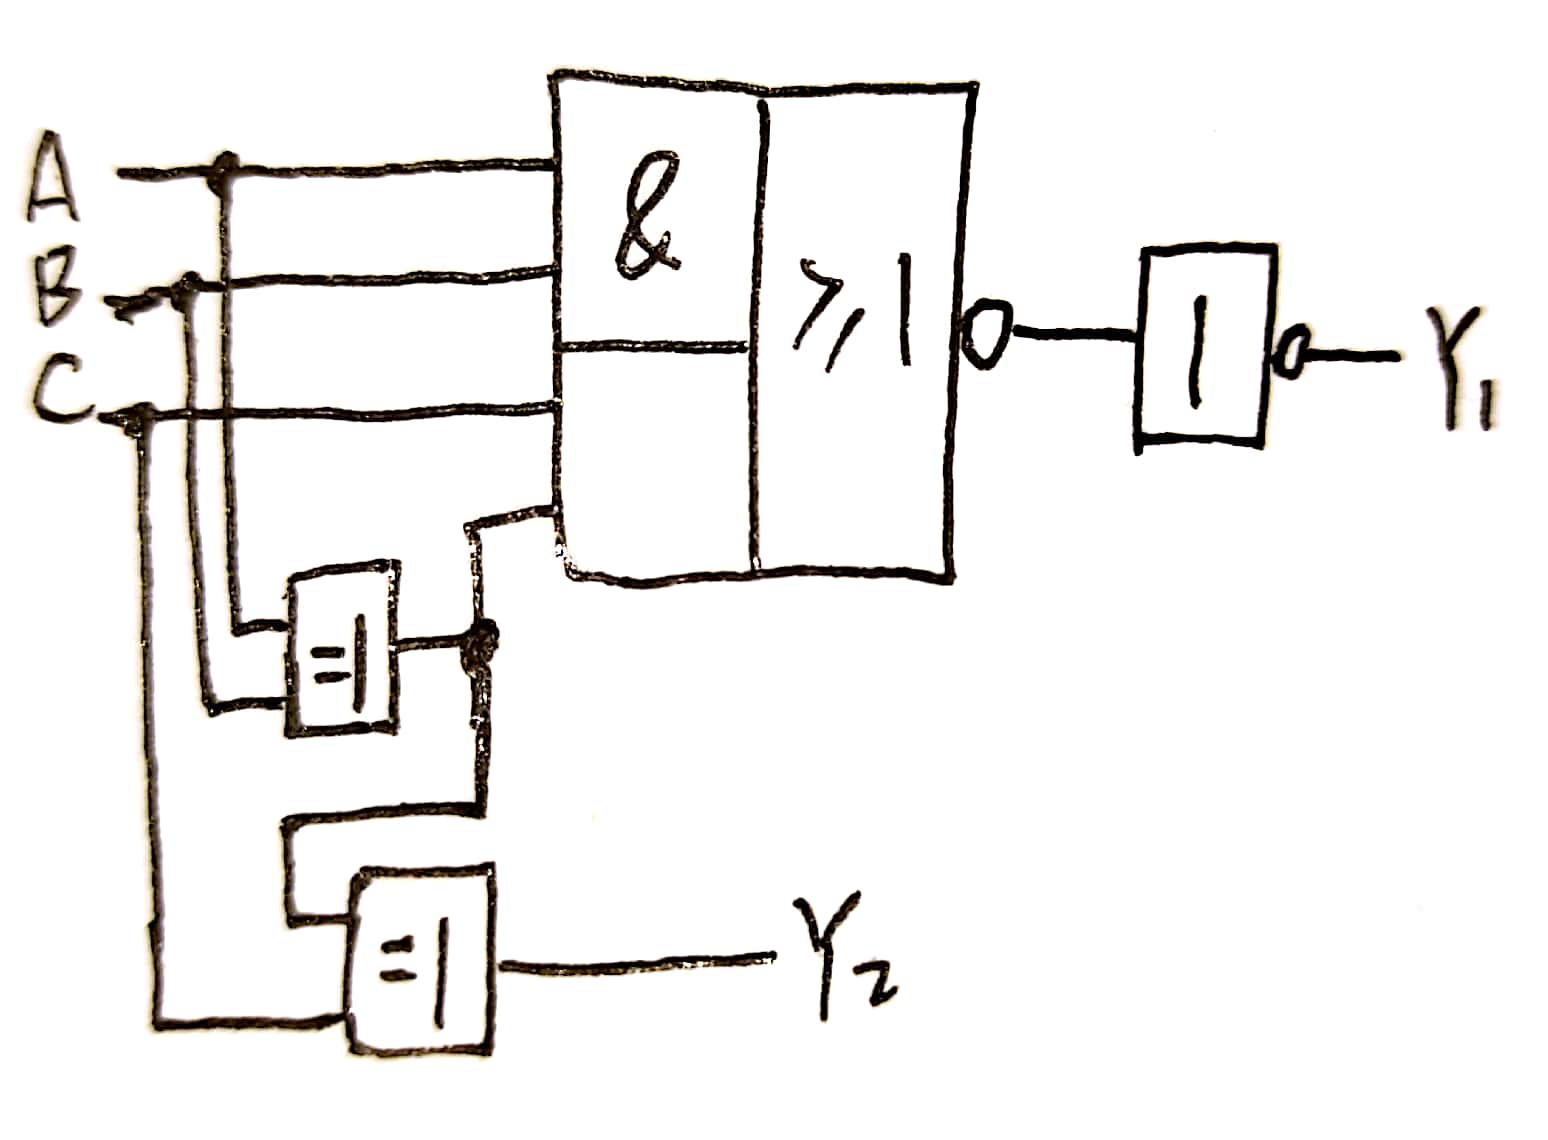 A
B
C
&
≥1
1
Y₁
=1
=1
Y₂